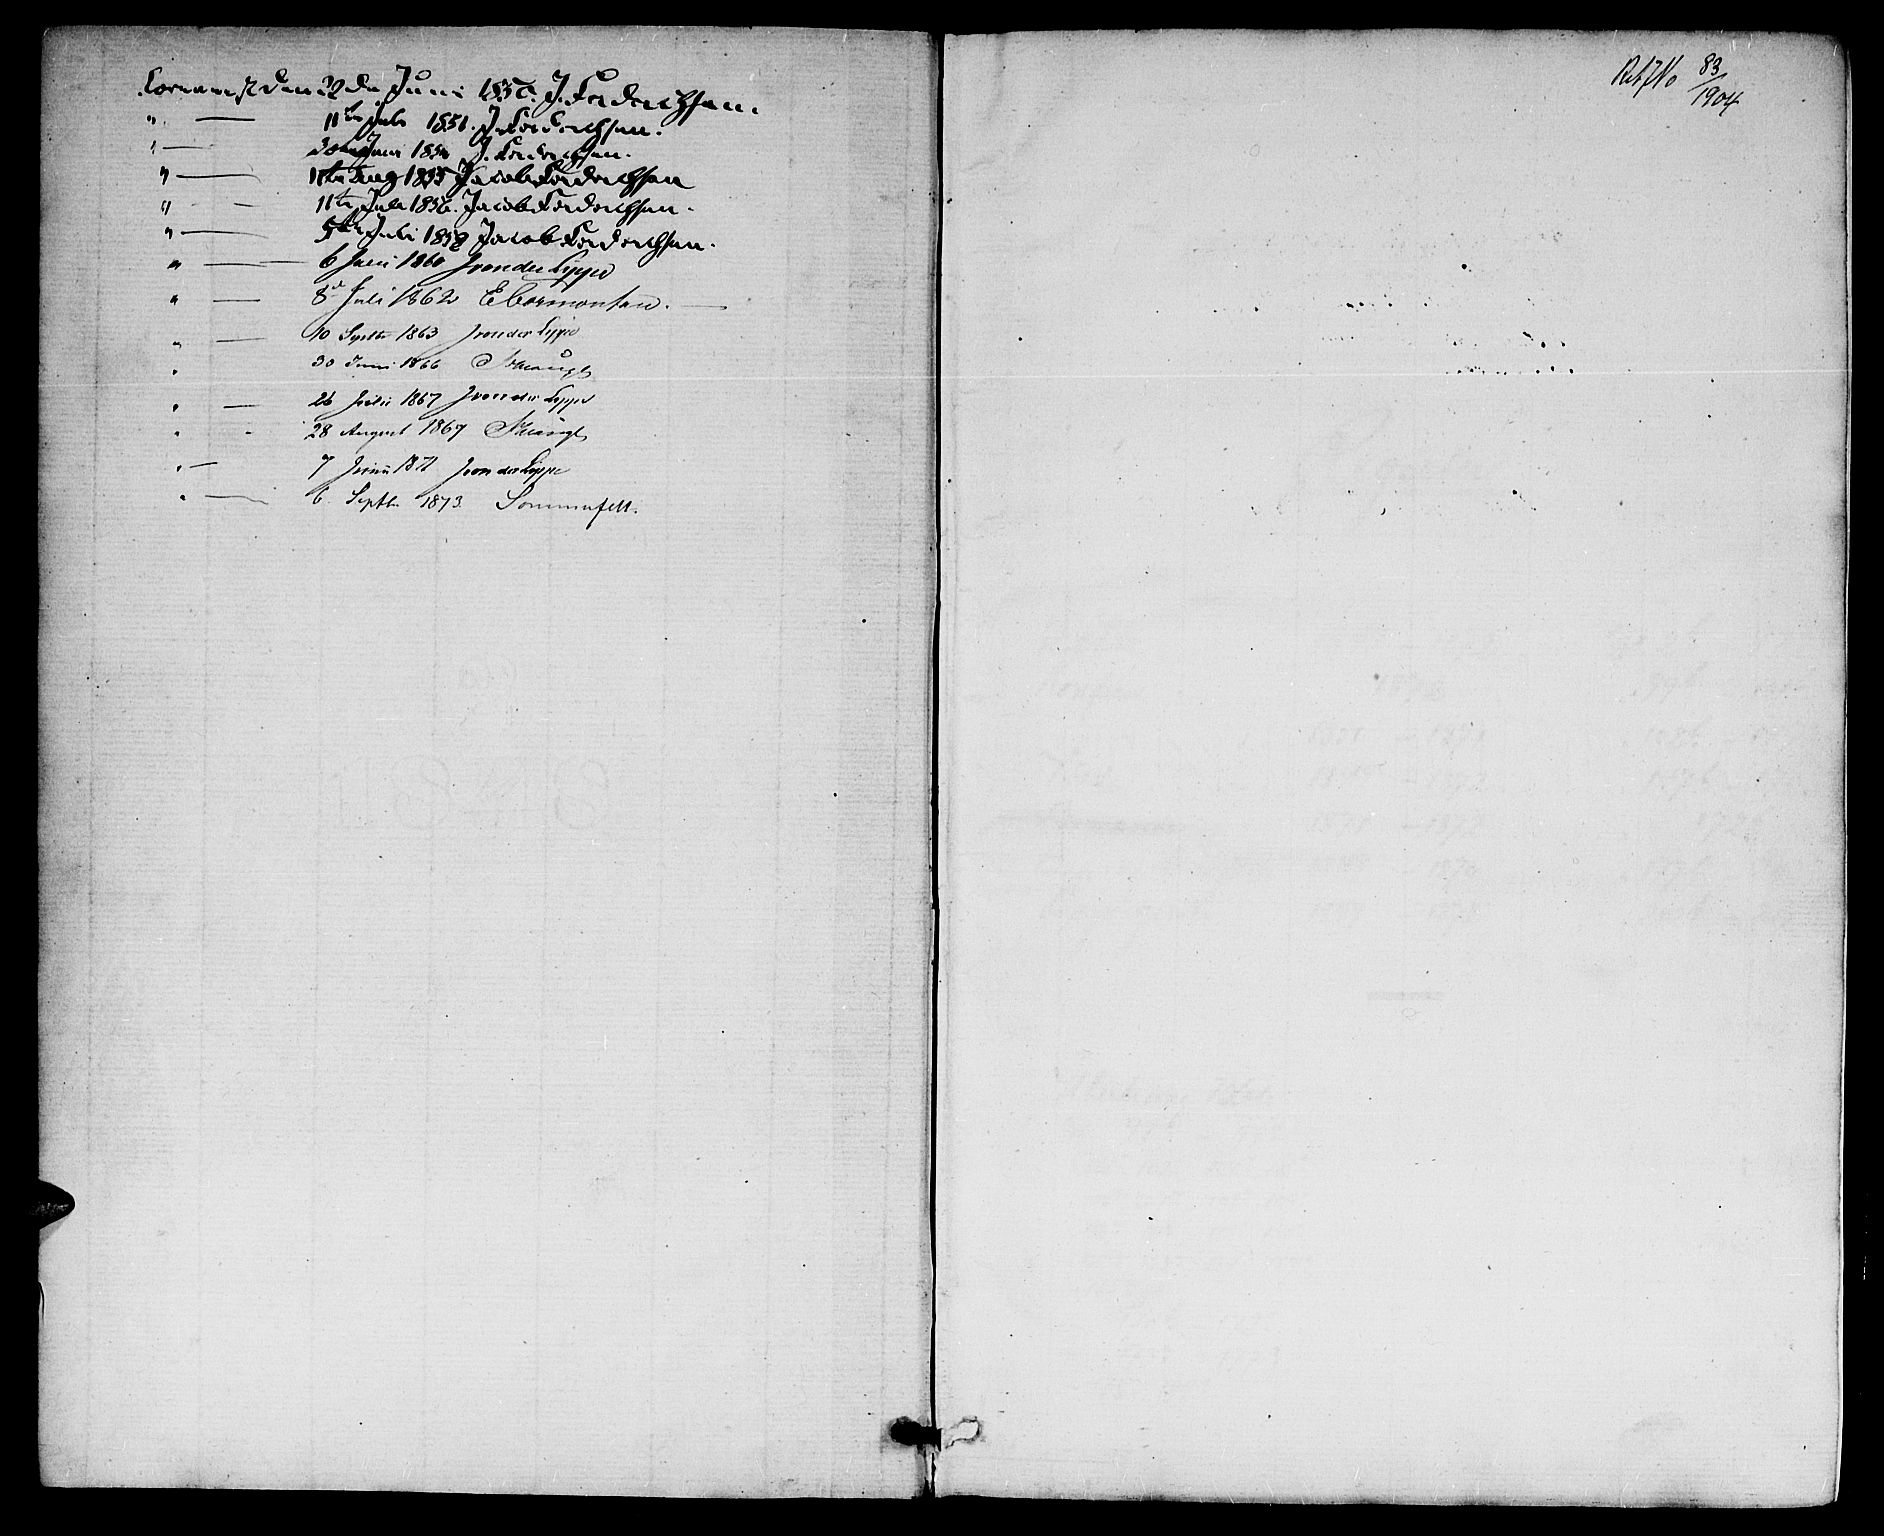 den 22de Juni 185 J. Frederichsen.
" — 11te Juli 1851. J. Frederichsen.
" — Juni 185 J. Frederichsen.
" — 11te Aug 1855 Jacob Frederichsen
" — 11te Juli 1856. Jacob Frederichsen.
" — 5te Juli 1858 Jacob Frederichsen.
" — 6 Juni 1860 J von der Lippe
" — 8de Juli 1862 E Bormonsen.
" — 10 Septbr 1863 J von der Lippe
" 30 Juni 1866
" — 26 Julii 1867 J von der Lippe
" - 28 August 1867
" — 7 Junii 1871 J von der Lippe
" — 6. Septbr 1873. Sommerfelt.
No 83/1904